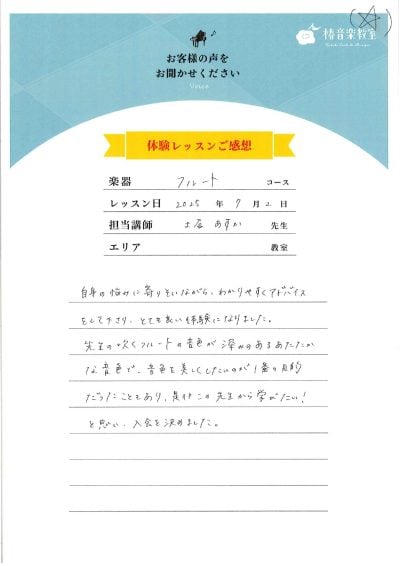 椿音楽教室
お客様の声を
お聞かせください
Voice
体験レッスンご感想
楽器 フルート コース
レッスン日 2025 年 7 月 2 日
担当講師 土屋 あすか 先生
エリア 教室
自身の悩みに寄りそいながら、わかりやすくアドバイス
をして下さり、とても良い体験になりました。
先生の吹くフルートの音色が深みのあるあたたか
な音色で、音色を美しくしたいのが1番の目的
だったこともあり、是非この先生から学びたい!
と思い、入会を決めました。